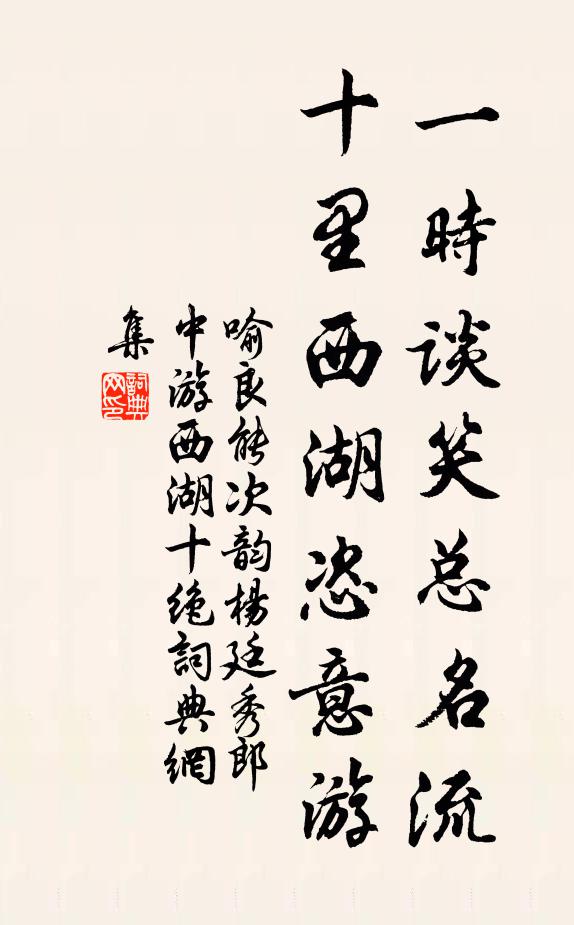 一時談笑总名流
十里西湖恣意游
喻良能次韵楊廷秀郎
中游西湖十绝詞典網
集
詞典
网印